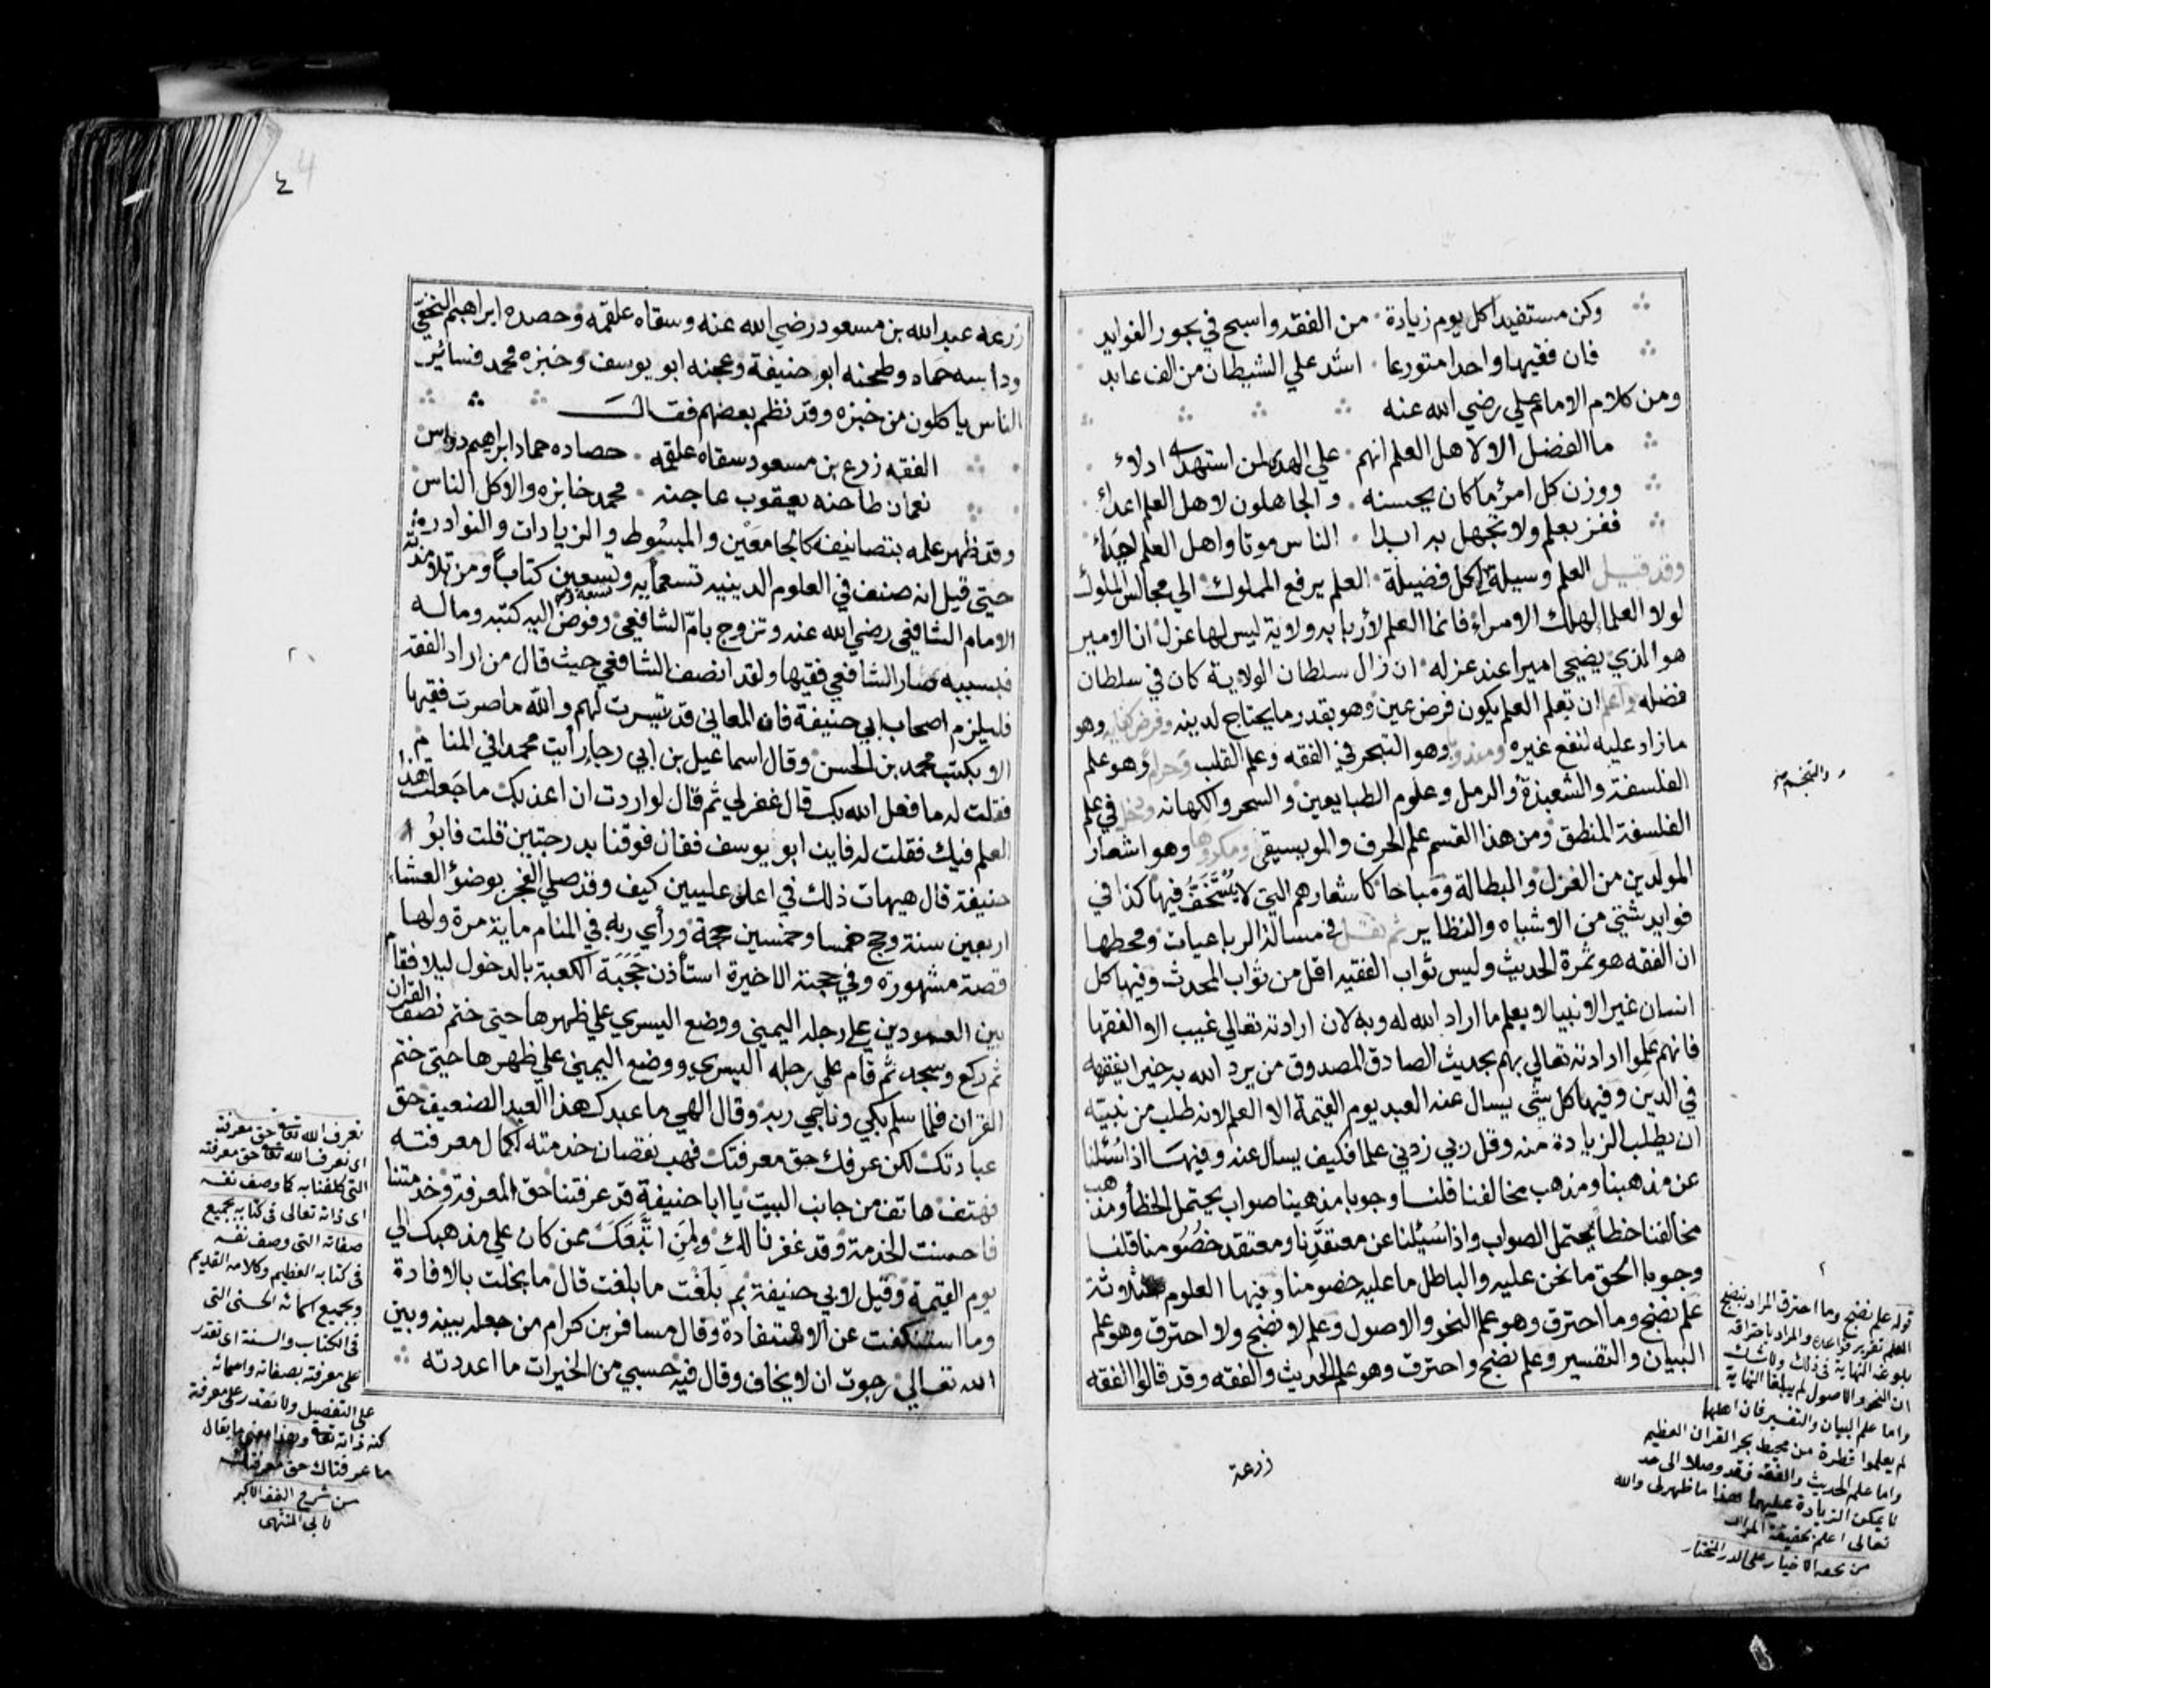 وكن مستفيدا كل يوم زيادة من الفقه واسبح في بحور الفوايد
فان فقيها واحدا متورعا اشد علي الشيطان من الف عابد
ومن كلام الامام علي رضي الله عنه
ما الفضل الا لاهل العلم انهم علي الهدي لمن استهدي ادلاء
ووزن كل امرئ ما كان يحسنه والجاهلون لاهل العلم اعداء
ففز بعلم ولا تجهل به ابدا الناس موتا واهل العلم احياء
وقد قيل العلم وسيلة لكل فضيلة العلم يرفع المملوك الي مجالس الملوك
لولا العلما لهلك الامراء فانما العلم لأربابه ولاية ليس لها عزل ان الامير
هو الذي يضحي اميرا عند عزله ان زال سلطان الولاية كان في سلطان
فضله واعلم ان تعلم العلم يكون فرض عين وهو بقدر ما يحتاج لدينه وفرض كفاية وهو
ما زاد عليه لنفع غيره ومندوبا وهو التبحر في الفقه وعلم القلب وحراما وهو علم
الفلسفة والشعبذة والرمل وعلوم الطبايعين والسحر والكهانه ودخل في علم
الفلسفة المنطق ومن هذا القسم علم الحرف والمويسيقي ومكروها وهو اشعار
المولدين من الغزل والبطالة ومباحا كاشعارهم التي لا يُسْتَخَفُّ فيها كذا في
فوايد شتي من الاشباه والنظاير ثم نقل في مسالة الرباعيات ومحطها
ان الفقه هو ثمرة الحديث وليس ثواب الفقيه اقل من ثواب المحدث وفيها كل
انسان غير الانبيا لا يعلم ما اراد الله له وبه لان ارادته تعالي غيب الا الفقها
فانهم علموا ارادته تعالي بهم بحديث الصادق المصدوق من يرد الله به خيرا يفقهه
في الدين وفيها كل شي يسال عنه العبد يوم القيمة الا العلم لانه طلب من نبيه
ان يطلب الزيادة منه وقل ربي زدني علما فكيف يسأل عنه وفيها اذا سُئلنا
عن مذهبنا ومذهب مخالفنا قلنا وجوبا مذهبنا صواب يحتمل الخطأ ومذهب
مخالفنا خطأ يحتمل الصواب واذا سُئيلنا عن معتقدنا ومعتقد خصومنا قلنا
وجوبا الحق ما نحن عليه والباطل ما عليه خصومنا وفيها العلوم ثلاثة
علم نضج وما احترق وهو علم النحو والاصول وعلم لا نضج ولا احترق وهو علم
البيان والتفسير وعلم نضج واحترق وهو علم الحديث والفقه وقد قالوا الفقه
زرعة
والتنجيم
قوله علم نضج وما احترق المراد بنضج
العلم تقرير قواعده والمراد باحتراقه
بلوغه النهاية في ذلك ولا شك
ان النحو والاصول لم يبلغا النهاية
واما علم البيان والتفسير فان اهلها
لم يعلموا قطرة من محيط بحر القران العظيم
واما علم الحديث والفقه فقد وصلا الى حد
لا يمكن الزيادة عليهما هذا ما ظهر لي والله
تعالى اعلم بحقيقة المراد
من تحفه الاخيار على الدر المختار
٤ 4
زرعه عبد الله بن مسعود رضي الله عنه وسقاه علقمه وحصده ابراهيم النخعي
وداسه حماد وطحنه ابو حنيفة وعجنه ابو يوسف وخبزه محمد فسائر
الناس ياكلون من خبزه وقد نظم بعضهم فقالت
الفقه زرع بن مسعود سقاه علقمه حصاده حماد ابراهيم دواس
نعمان طاحنه يعقوب عاجنه محمد خابزه والاكل الناس
وقد ظهر علمه بتصانيفه كالجامعَين والمبسُوط والزيادات والنوادر
حتي قيل انه صنف في العلوم الدينيه تسعمايه وتسعة وتسعين كتاباً ومن تلامذته
الامام الشافعي رضي الله عنه وتزوج بام الشافعي وفوض اليه كتبه وماله
فبسببه صار الشافعي فقيها ولقد انصف الشافعي حيث قال من اراد الفقه
فليلزم اصحاب ابي حنيفة فان المعاني قد تيسرت لهم والله ما صرت فقيها
الا بكتب محمد بن الحسن وقال اسماعيل بن ابي رجا رأيت محمدا في المنام
فقلت له ما فعل الله بك قال غفر لي ثم قال لو اردت ان اعذبك ما جعلت هذا
العلم فيك فقلت له فاين ابو يوسف فقال فوقنا بدرجتين قلت فابو
حنيفة قال هيهات ذلك في اعلي عليين كيف وقد صلي الفجر بوضؤ العشاء
اربعين سنة وحج خمسا وخمسين حجة ورأي ربه في المنام ماية مرة ولها
قصة مشهورة وفي حجته الاخيرة استأذن حَجَبَة الكعبة بالدخول ليلا فقام
بين العمودين علي رجله اليمني ووضع اليسري علي ظهرها حتي ختم نصف القران
ثم ركع وسجد ثم قام علي رجله اليسري ووضع اليمني علي ظهرها حتي ختم
القران فلما سلم بكي وناجي ربه وقال الهي ما عبدك هذا العبد الضعيف حق
عبادتك لكن عرفك حق معرفتك فهب نقصان خدمته لكمال معرفته
فهتف هاتف من جانب البيت يا ابا حنيفة قد عرفتنا حق المعرفة وخدمتنا
فاحسنت الخدمة وقد غفرنا لك ولمن اتَّبَعَكَ ممن كان علي مذهبك الي
يوم القيمة وقيل لابي حنيفة بم بلَغْت ما بلغت قال ما بخلت بالافادة
وما استنكفت عن الاستفادة وقال مسافر بن كرام من جعله بينه وبين
الله تعالي رجوت ان لا يخاف وقال فيه حسبي من الخيرات ما اعددته
نعرف الله تعالى حق معرفته
اي نعرف الله تعالى حق معرفته
التي كلفنا به كما وصف نفسه
اي ذاته تعالى في كتابه بجميع
صفاته التي وصف نفسه
في كتابه العظيم وكلامه القديم
وبجميع اسمائه الحسنى التي
في الكتاب والسنة اي نقدر
على معرفته بصفاته واسمائه
على التفصيل ولا نقدر على معرفة
كنه ذاته تعالى وهذا معنى ما يقال
ما عرفناك حق معرفتك
من شرح الفقه الاكبر
لابي المنتهى